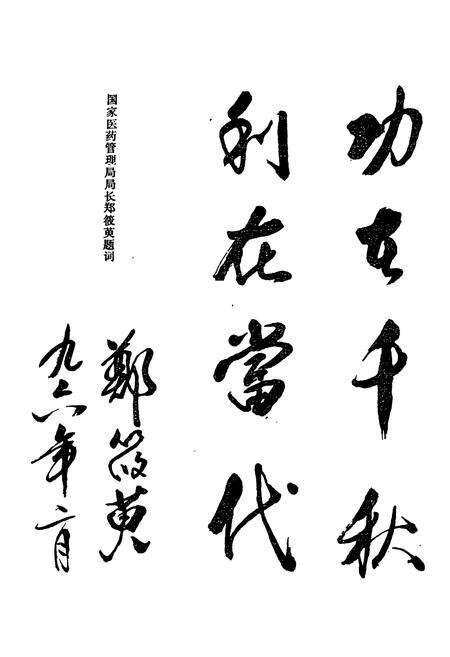 功在千秋
利在當代
国家医药管理局局长郑筱萸题词
鄭筱萸
九六年二月